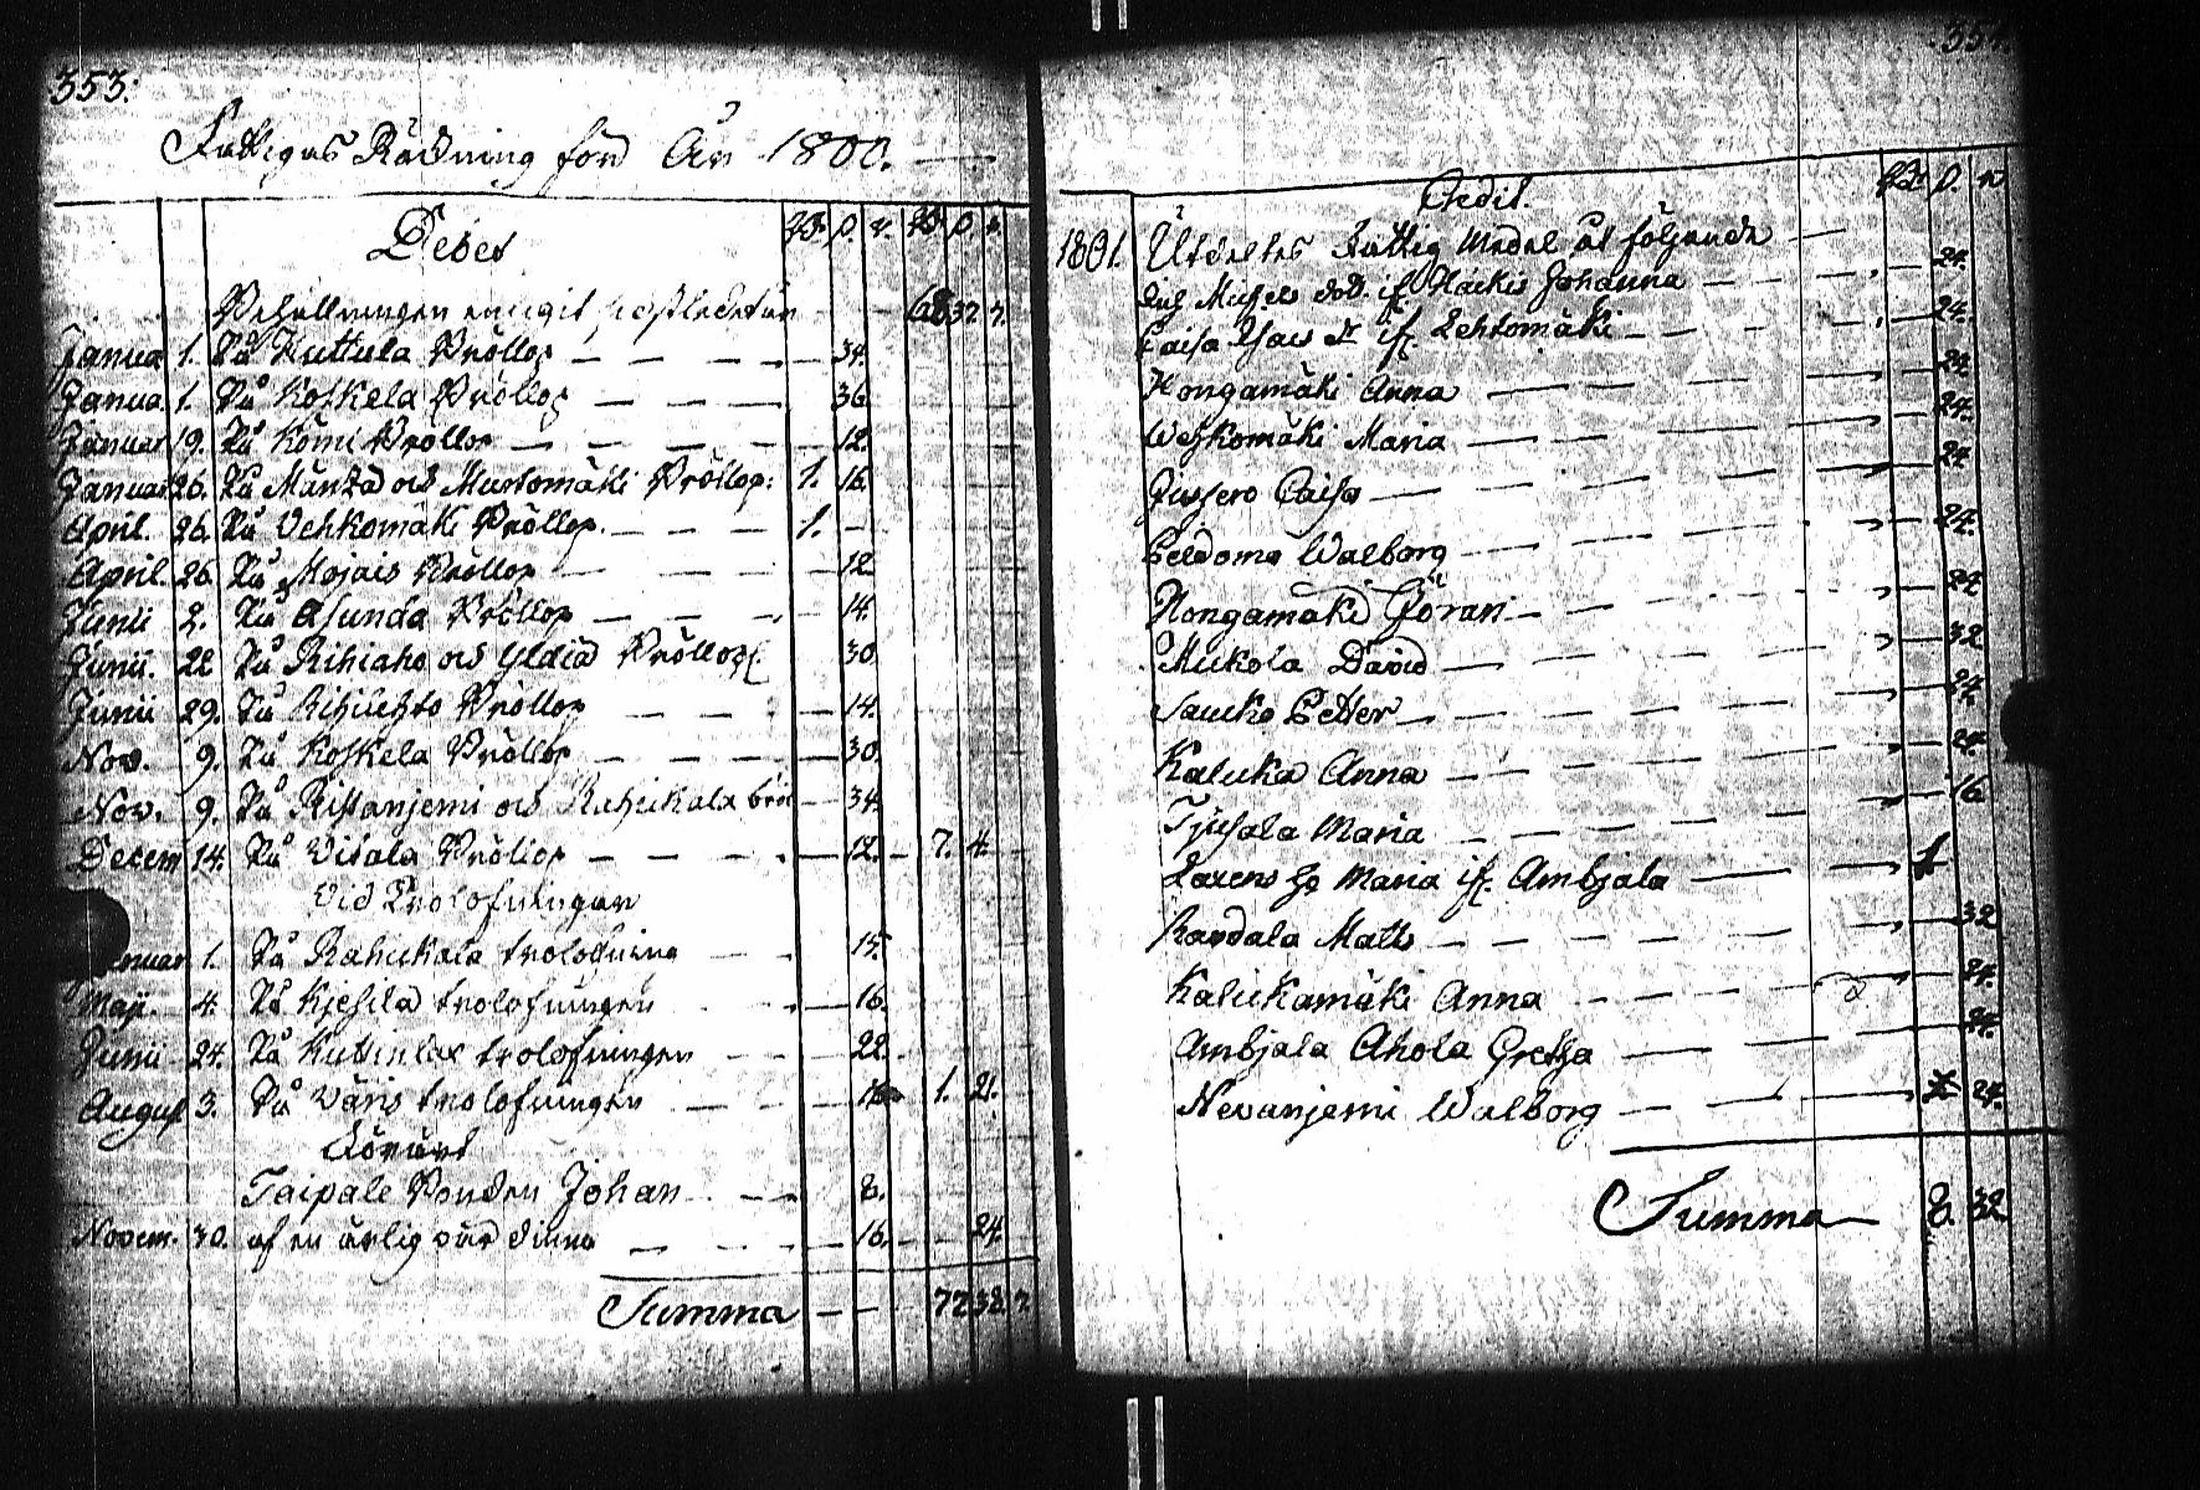 353.
Fattigas Räkning för År 1800.
Debet
Rd. ß. r. Rd. ß. r.
Behållningen enligit 68 32 7.
Janua 1. På Kuttula Bröllop 34.
Janua. 1. På Koskela Bröllop 36
Januar 19. På Kömi Bröllop 12.
Januari 26. På Mänta och Murtomäki Bröllop: 1. 16.
April. 26. På Vehkomäki Bröllop. 1. –
April. 26. På Mojais Bröllop 12.
Junii 2. På Asunda Bröllop 14.
Junii. 22 På Rihiaho och Yldiä Bröllop 30.
Junii 29. På Bröllop 14.
Nov. 9. På Koskela Bröllop 30.
Nov. 9. På Ristanjemi och Rahukala brö 34.
Decem 14. På Vitala Bröllop 12. 7. 4.
Vid Trolofningar
1. På Rahukala trolofning 15.
Maji. 4. På Kjesilä trolofningen 16.
Junii 24. På Kuttinlax trolofningen 22.
August 3. På Wäris trolofningen 16 1. 21.
Förärt
Taipale Bonden Johan 8.
Novem. 30. af en ärlig 16. 24.
Summa 72 32. 7.
354.
Credit.
Rd. ß. r
1801. Utdeltes Fattig Medel åt följande
if. Häckis Johanna 24.
Caisa if. Lehtomäki 24.
Hongamäki Anna 24.
Wehkomäki Maria 24.
Caisa 24
Peldoma Walborg 24.
Hongamäki Göran 24
Mickola David 32
Saucko Petter 24
Kaluka Anna 24.
Tjusala Maria 16
Larens Maria if. Ambjala 1
Randala Matts 32
Kalukamäki Anna 24.
Ambjala Ahola Gretha 24.
Nevanjemi Walborg 24.
Summa 8. 32